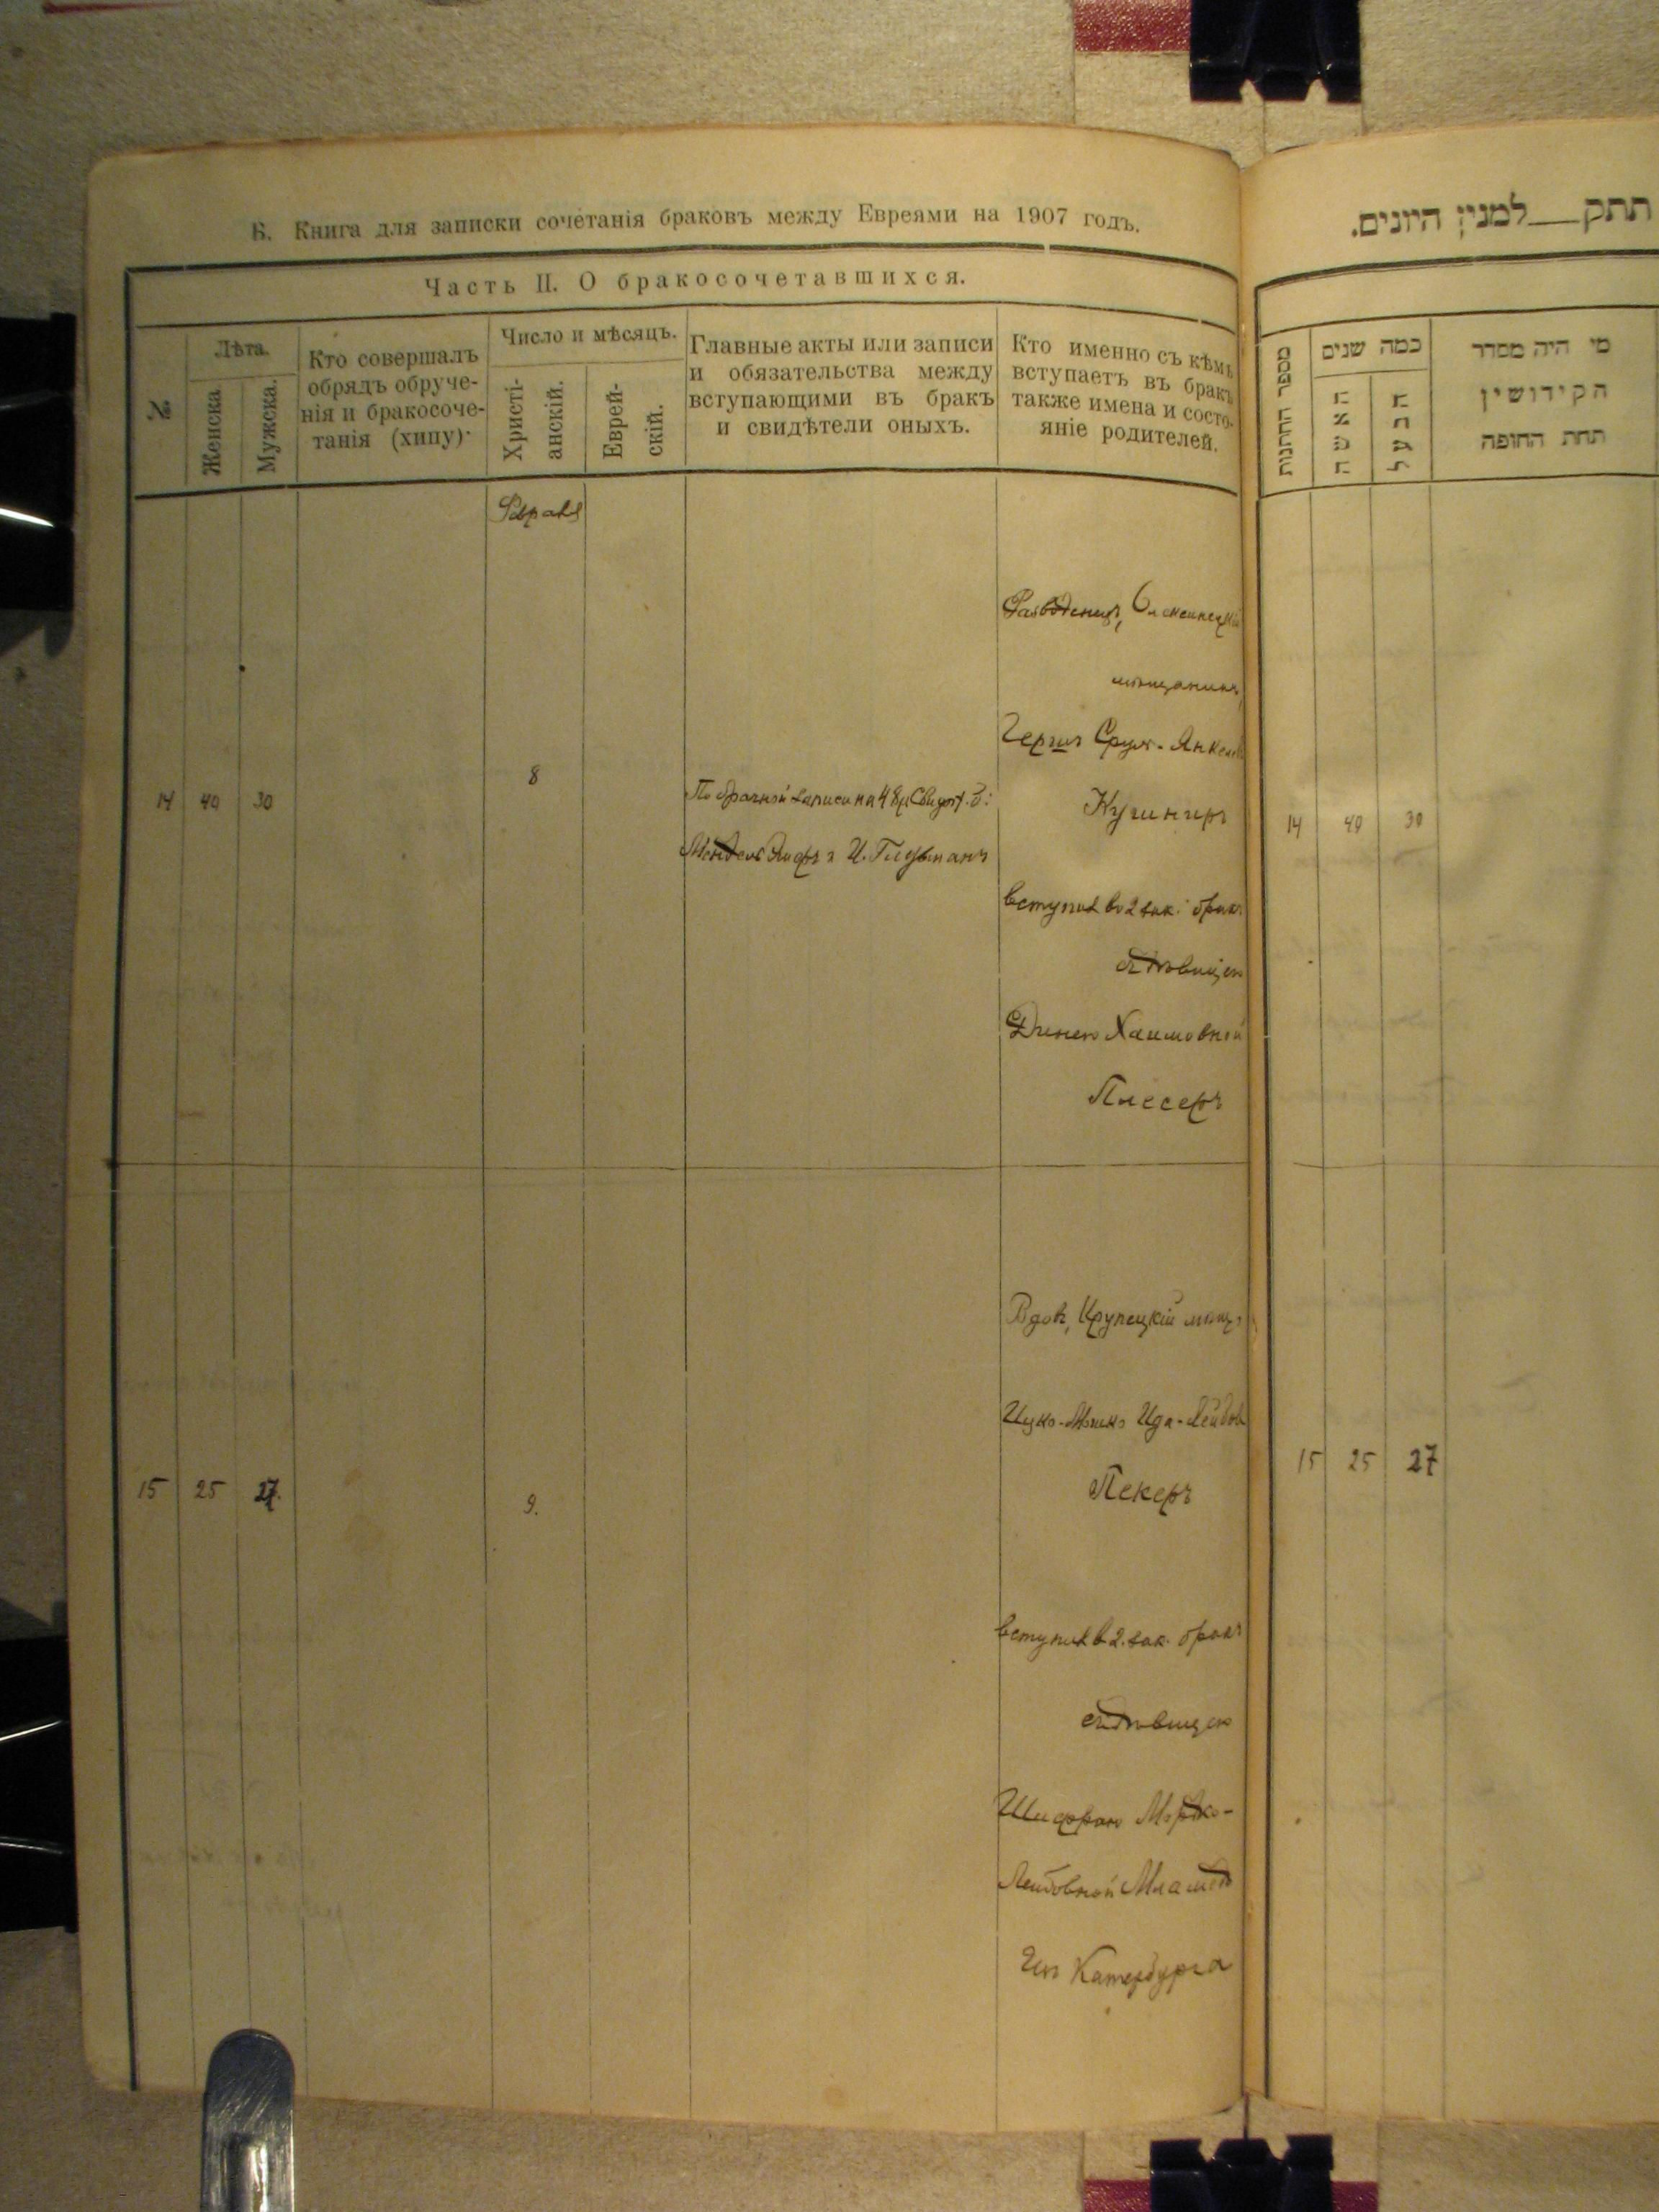 Б. Книга для записки сочетанія браковъ между Евреями на 1907 годъ.
Часть II. О бракосочетавшихся.
№
Лѣта.
Женска.
Мужска.
Кто совершалъ
обрядъ обруче-
нія и бракосоче-
танія (хипу).
Число и мѣсяцъ.
Христі-
анскій.
Еврей-
скій.
Главные акты или записи
и обязательства между
вступающими въ бракъ
и свидѣтели оныхъ.
Кто именно съ кѣмъ
вступаетъ въ бракъ
также имена и состо-
яніе родителей.
Февраль
14 40 30
8
По брачной записи на 48 р Свидѣт. З:
Мендель И. Глузманъ
мѣщанинъ,
Срулъ-Янкел
вступил во 2 зак: бракъ
съ вдовицею
Хаимовной
Плесеръ
15 25 27.
9.
Вдов, Крупецкій мѣщ.
Ицко-Мошко Ида-Лейбов
Пекеръ
вступил в 2. зак. бракъ
съ вдовицею
Шифрою Мордко-
Лейбовной
Изъ Катербурга
תתק___למנין היונים.
מספר החתונות
כמה שנים
האשה
הבעל
מי היה מסדר
הקידושין
תחת החופה
14 40 30
15 25 27